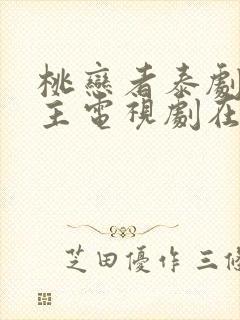 桃戀者泰劇
主電視劇在
芝田優作 三條